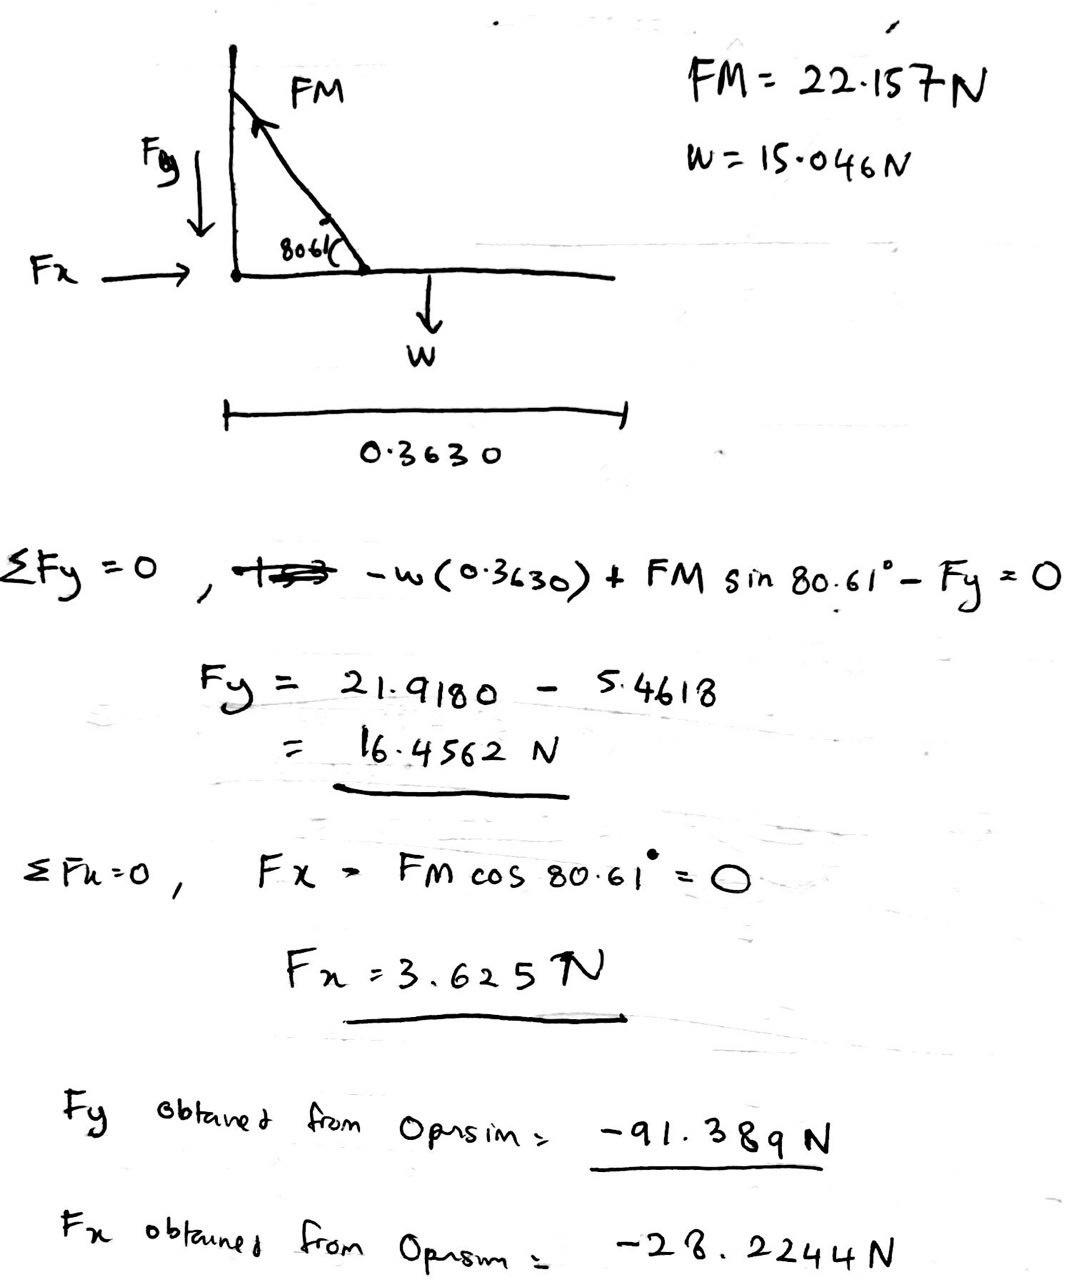 FM
FM = 22.157N
Fy
W = 15.046N
80.61
Fx
W
0.3630
ΣFy = 0 , -w (0.3630) + FM sin 80.61° - Fy = 0
Fy = 21.9180 - 5.4618
= 16.4562 N
ΣFx = 0 , Fx - FM cos 80.61° = 0
Fx = 3.625 N
Fy obtained from Opensim = -91.389 N
Fx obtained from Opensim = -28.2244 N